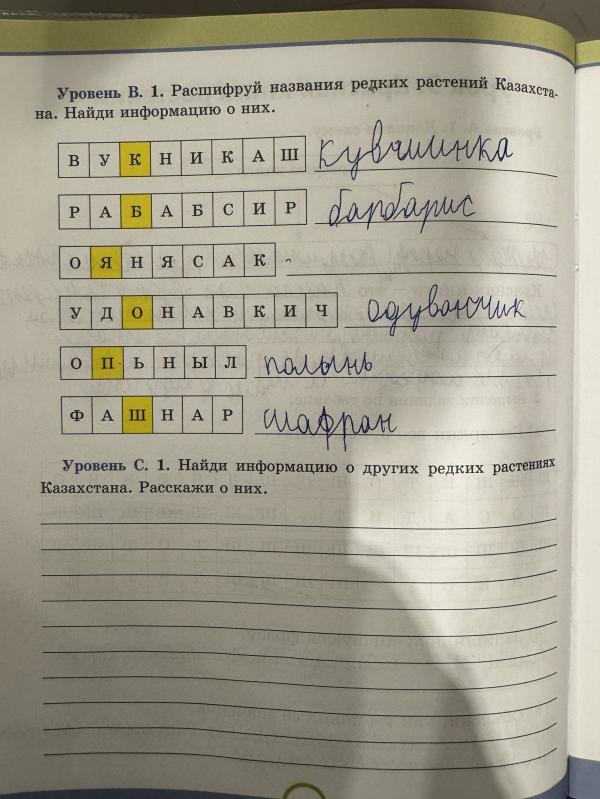 Уровень В. 1. Расшифруй названия редких растений Казахста-
на. Найди информацию о них.
В У К Н И К А Ш кувшинка
Р А Б А Б С И Р барбарис
О Я Н Я С А К
У Д О Н А В К И Ч одуванчик
О П Ь Н Ы Л полынь
Ф А Ш Н А Р шафран
Уровень С. 1. Найди информацию о других редких растениях
Казахстана. Расскажи о них.